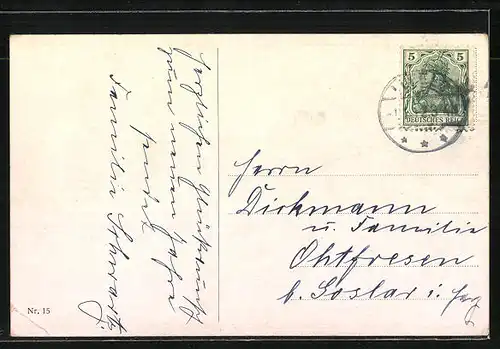 Herzlichen Glückwunsch
zum neuen Jahre
sendet
Familie Schwartz
Nr. 15
5 5
DEUTSCHES REICH
Herrn
Dickmann
u. Familie
Ohlfresen
b. Goslar i.